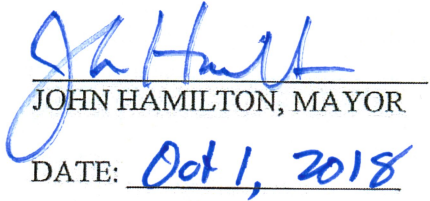 John Hamilt
JOHN HAMILTON, MAYOR
DATE: Oct 1, 2018